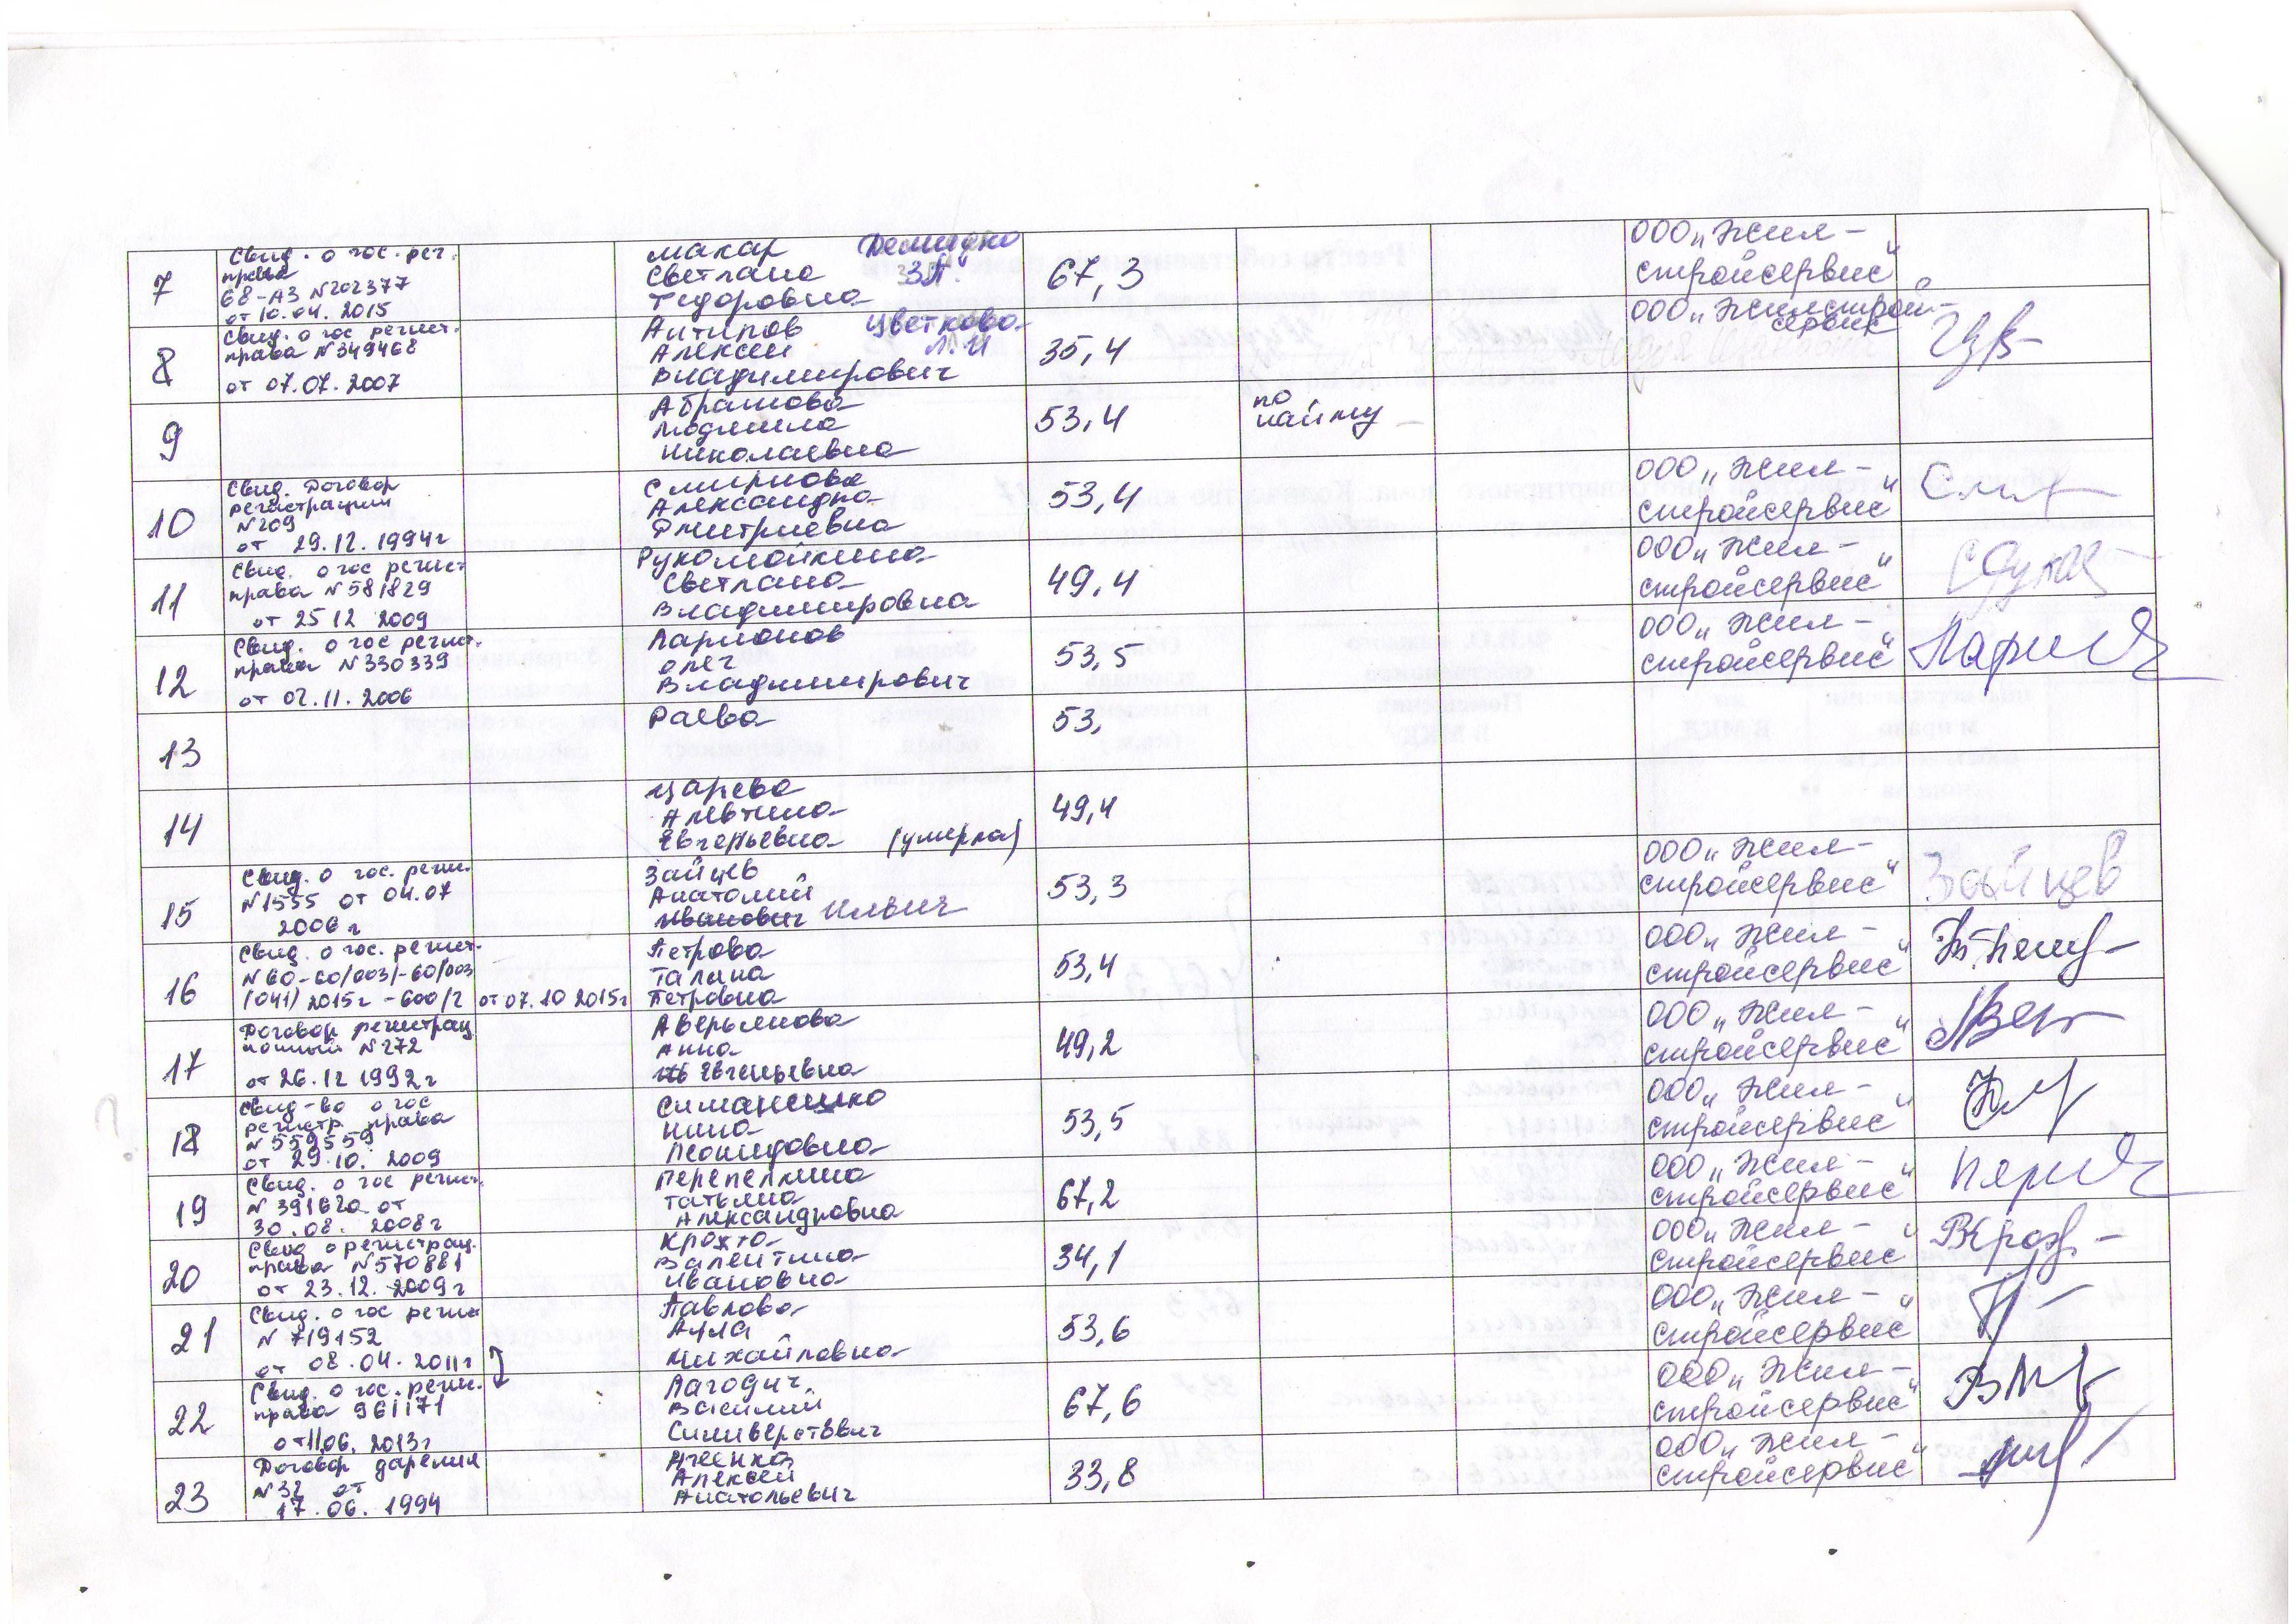 7
Свид. о гос. рег.
права
68-АЗ N202377
от 10.04. 2015
Макар Демидко
Светлана З.П.
Федоровна
67,3
ООО „Жил-
стройсервис"
8
Свид. о гос регист.
права N349468
от 07.07. 2007
Антипов Цветкова
Алексей Л.И
Владимирович
35,4
ООО „Жилстрой-
сервис"
Цв
9
Абрамова
Людмила
Николаевна
53,4
по
найму
10
Свид. Договор
регистрации
N209
от 29.12. 1994г
Смирнова
Александра
Дмитриевна
53,4
ООО „Жил-
стройсервис"
11
Свид. о гос регист
права N581829
от 25 12 2009
Рукомойкина
Светлана
Владимировна
49,4
ООО „Жил-
стройсервис"
12
Свид. о гос регист.
права N330339
от 02.11. 2006
Ларионов
Олег
Владимирович
53,5
ООО „Жил-
стройсервис"
13
Раева
53,
14
Царева
Алевтина
Евгеньевна (умерла)
49,4
15
Свид. о гос. реги.
N1555 от 04.07
2006г
Зайцев
Анатолий
Иванович Ильич
53,3
ООО „Жил-
стройсервис"
Зайцев
16
Свид. о гос. регист.
N60-60/003/-60/003
(041) 2015г -600/2 от 07.10 2015г
Петрова
Галина
Петровна
53,4
ООО „Жил-
стройсервис"
17
Договор регистрац
ионный N272
от 26.12 1992г
Аверьянова
Анна
Евгеньевна
49,2
ООО „Жил-
стройсервис"
18
Свид-во о гос
регистр. права
N 559559
от 29.10. 2009
Симанешко
Нина
Леонидовна
53,5
ООО „Жил-
стройсервис"
19
Свид. о гос регист.
N 391620 от
30.08. 2008г
Перепелкина
Татьяна
Александровна
67,2
ООО „Жил-
стройсервис"
20
Свид о регистрац.
права N570881
от 23.12. 2009г
Крохта
Валентина
Ивановна
34,1
ООО „Жил-
стройсервис"
21
Свид. о гос реги
N 719152
от 08.04. 2011г
Павлова
Алла
Михайловна
53,6
ООО „Жил-
стройсервис"
22
Свид. о гос. реги.
права 961171
от 11.06. 2013г
Лагодич
Василий
Силиверстович
67,6
ООО „Жил-
стройсервис"
23
Договор дарения
N32 от
17.06. 1994
Алексей
Анатольевич
33,8
ООО „Жил-
стройсервис"